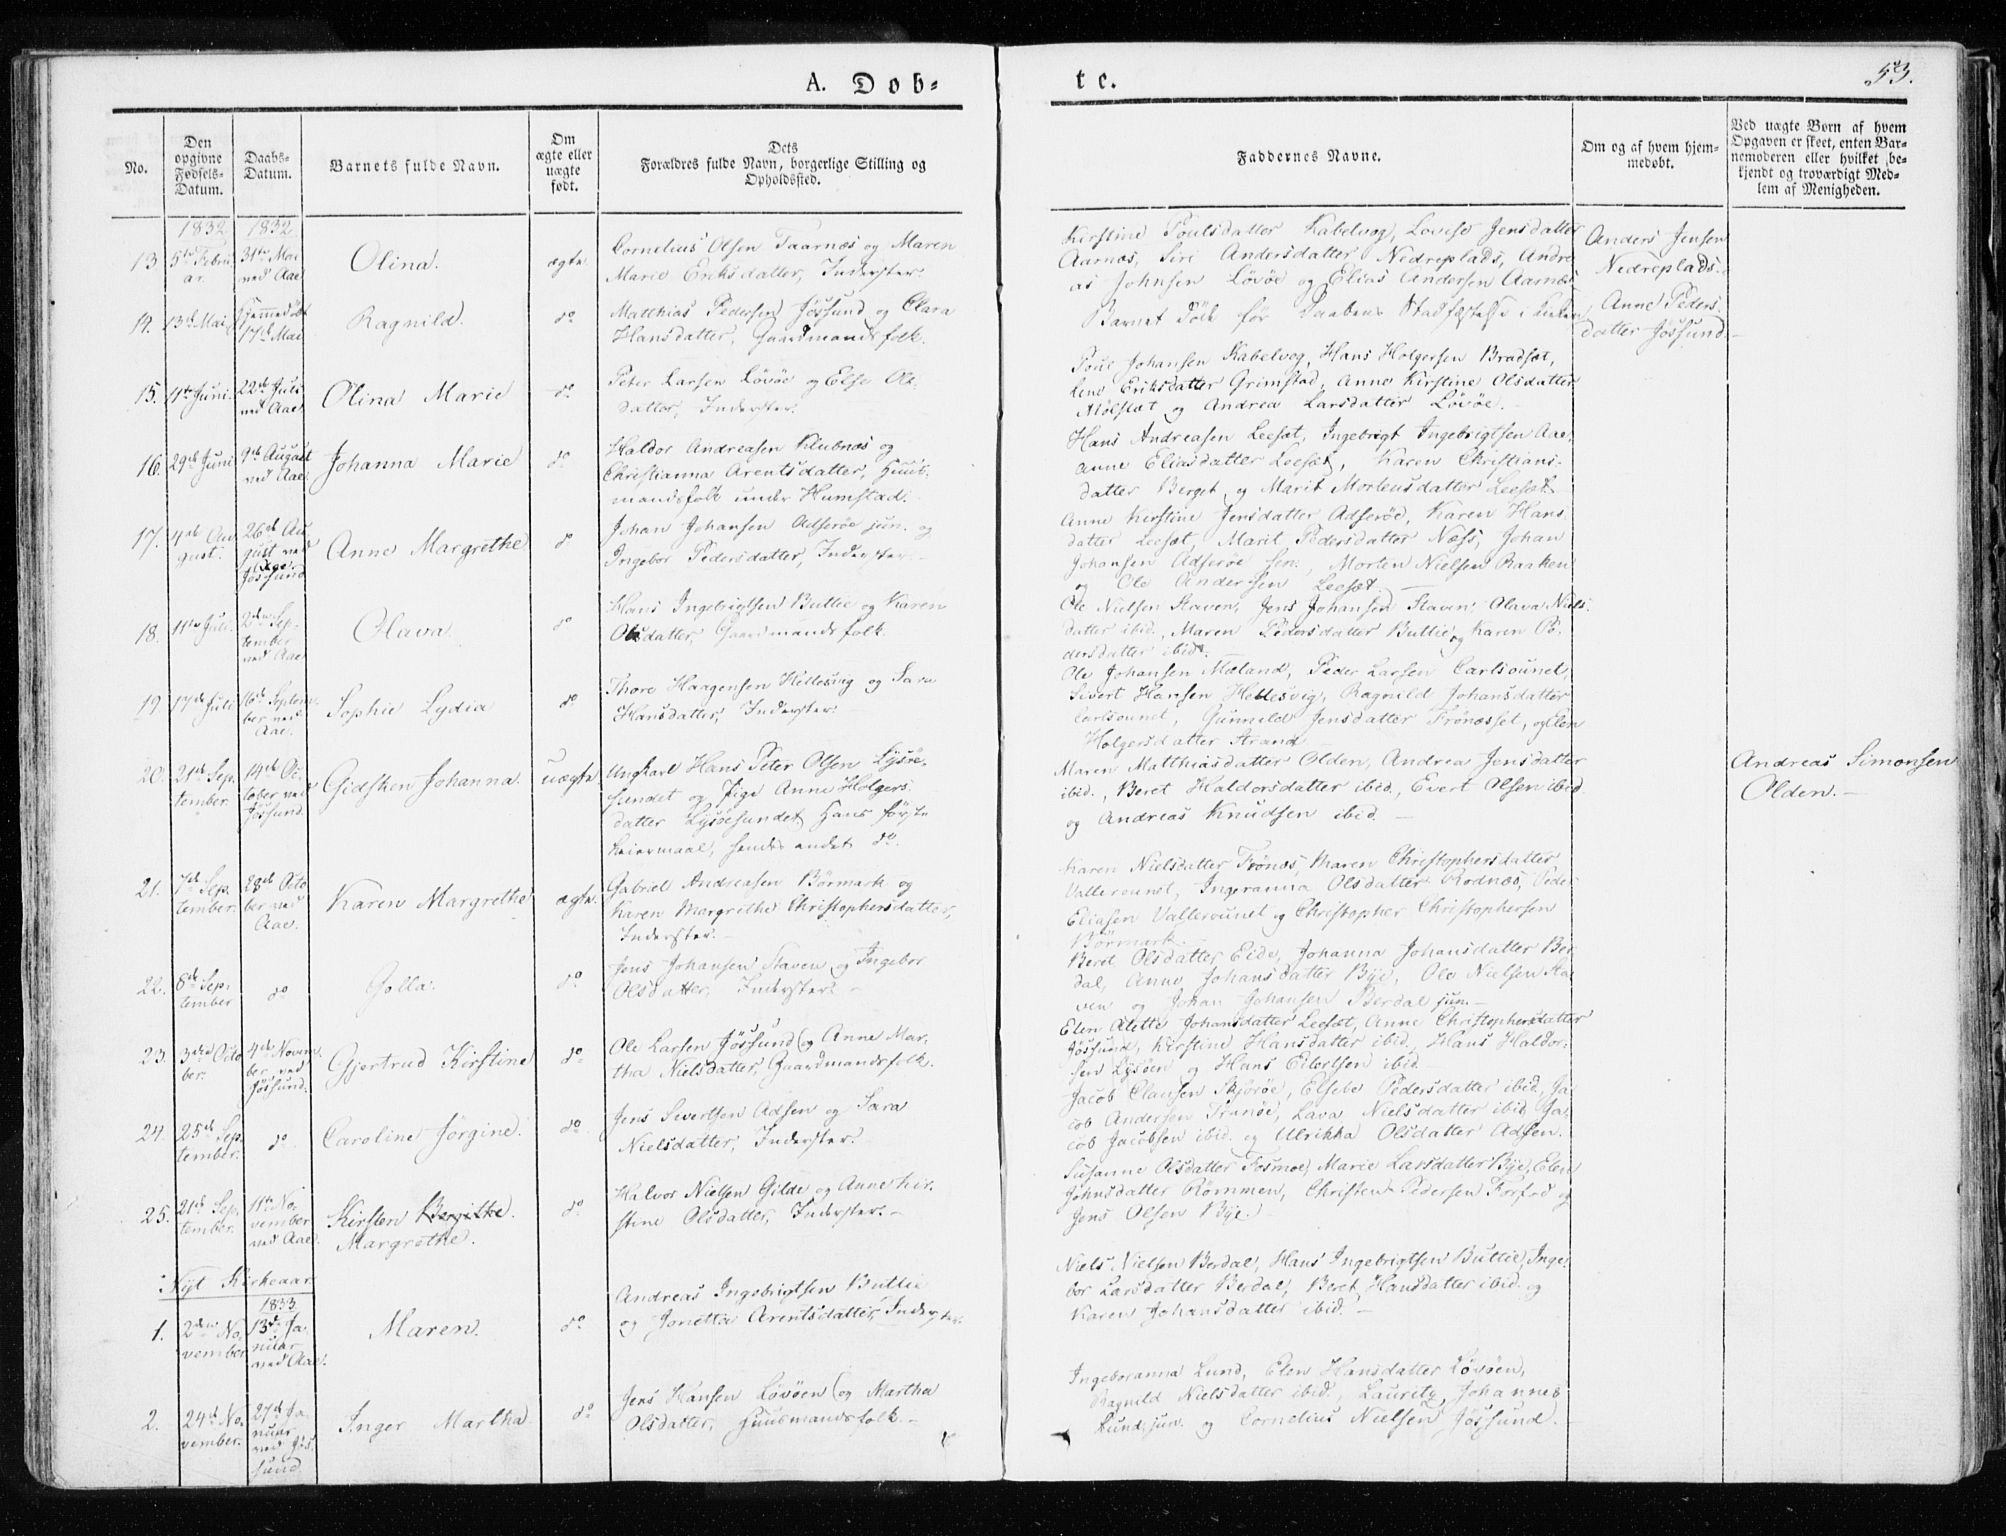 A. Dob-
te.
53.
No.
Den opgivne Fødsels-Datum.
Daabs-Datum.
Barnets fulde Navn.
Om ægte eller uægte født.
Dets Forældres fulde Navn, borgerlige Stilling og Opholdssted.
Faddernes Navne.
Om og af hvem hjemmedøbt.
Ved uægte Børn af hvem Opgaven er skeet, enten Barnemoderen eller hvilket bekjendt og troværdigt Medlem af Menigheden.
1832 1832
13 5te Febru
ar.
31te Mai
ved Aae
Olina.
ægte
Cornelius Olsen Taarnæs og Maren
Marie Eriksdatter, Inderster.
Kirstine Poulsdatter Kabelvog, Lovise Jensdatter
Aarnæs, Siri Andersdatter Nedreplads, Andre
as Johnsen Lövöe og Elias Andersen Aarnæs
Anders Jensen
Nedreplads.
14. 13de Mai
Hjemmedöbt
17de Mai
Ragnild.
do
Matthias Pedersen Jössund og Clara
Hansdatter, Gaardmandsfolk.
Barnet döde för Daabens Stadfæstelse i Kirken
Anne Peders
datter Jössund.
15. 11te Juni.
22de Juli
ved Aae
Olina Marie
do
Peter Larsen Lövöe og Else Ols
datter, Inderster.
Poul Johansen Kabelvog, Hans Holgersen Bradsæt,
Lene Eriksdatter Grimstad, Anne Kirstine Olsdatter
Mölslæt og Andrea Larsdatter Lövöe.
16. 29de Juni
9de August
ved Aae.
Johanna Marie
do
Haldor Andreasen Klubnæs og
Christianna Arentsdatter, Huus-
mandsfolk under Humstad.
Hans Andreasen Leesæt, Ingebrigt Ingebrigtsen Aae,
Anne Eliasdatter Leesæt, Karen Christians-
datter Berget, og Marit Mortensdatter Leesæt
17. 4de Au
gust.
26de Au
gust ved
Jössund
Anne Margrethe
do
Johan Johansen Adseröe jun. og
Ingebor Pedersdatter, Inderster.
Anne Kirstine Jensdatter Adseröe, Karen Hans
datter Leesæt, Marit Pedersdatter Næss, Johan
Johansen Adseröe sen., Morten Nielsen Raaken
og Ole Andersen Leesæt.
18. 11te Juli.
2den Sep-
tember
ved Aae
Olava
do
Hans Ingebrigtsen Buttie og Karen
Olsdatter, Gaardmandsfolk.
Ole Nielsen Staven, Jens Johansen Staven, Olava Niels
datter ibid., Maren Pedersdatter Buttie og Karen Pe-
dersdatter ibid.
19. 17de Juli
16de Septem-
ber ved
Aae.
Sophie Lydia
do
Thore Haagensen Hellesvig og Sara
Hansdatter, Inderster.
Ole Johansen Mæland, Peder Larsen Carlsounet,
Sivert Hansen Hellesvig, Ragnild Johansdatter
Carlsounet, Gunnild Jensdatter Trönæsset, og Elen
Holgersdatter Strand
20. 21de Sep
tember.
14de Oc-
tober ved
Jössund.
Gidsken Johanna.
uægte
Ungkarl Hans Peter Olsen Lysöe-
sundet og Pige Anne Holgers-
datter Lysöesundet. Hans förste
Leiermaal, hendes andet do.
Maren Matthiasdatter Olden, Andrea Jensdatter
ibid., Beret Haldorsdatter ibid., Evert Olsen ibid.
og Andreas Knudsen ibid.
Andreas Simonsen
Olden.
21. 7de Sep
tember.
28de Octo
ber ved
Aae.
Karen Margrethe
ægte.
Gabriel Andreasen Börmark og
Karen Margrethe Christophersdatter,
Inderster.
Karen Nielsdatter Trönæs, Maren Christophersdatter
Vallersunet, Ingeranna Olsdatter Rodnæs, Peder
Eliasen Vallersunet og Christopher Christophersen
Börmark.
22. 8de Sep-
tember
do
Golla.
do
Jens Johansen Staven og Ingebor
Olsdatter, Inderster.
Beret Olsdatter Eide, Johanna Johansdatter Ber
dal, Anne Johansdatter Bye, Ole Nielsen Sta
ven og Johan Johansen Berdal jun.
23. 3die Octo
ber.
4de Novem
ber ved
Jössund.
Gjertrud Kirstine
do.
Ole Larsen Jössund og Anne Mar-
tha Nielsdatter, Gaardmandsfolk.
Elen Alette Johansdatter Leesæt, Anne Christophersdatter
Jössund, Kirstine Hansdatter ibid. Hans Haldor-
sen Lysöen og Hans Eilertsen ibid.
24. 25de Sep
tember.
do.
Caroline Jörgine.
do.
Jens Sivertsen Adsen og Sara
Nielsdatter, Inderster.
Jacob Clausen Skjöröe, Elsebe Pedersdatter ibid, Ja
cob Andersen Tranöe, Lava Nielsdatter ibid, Ja-
cob Jacobsen ibid. og Ulrikka Olsdatter Adsen.
25. 21de Sep
tember.
11te No-
vember
ved Aae.
Kirsten Bergithe.
Margrethe.
do
Halvor Nielsen Gilde og Anne Kir-
stine Olsdatter, Inderster.
Susanne Olsdatter Fosmoe, Marie Larsdatter Bye, Elen
Johnsdatter Römmen, Christen Pedersen Forfod og
Jens Olsen Bye.
Nyt Kirkeaar
1833.
1. 2den No-
vember
13de Ja
nuar
ved Aae.
Maren.
do
Andreas Ingebrigtsen Buttie
og Jonetta Arentsdatter, Inderster.
Niels Nielsen Berdal, Hans Ingebrigtsen Buttie, Inge
bor Larsdatter Berdal, Beret Hansdatter ibid. og
Karen Johansdatter ibid.
2. 24de No-
vember.
27de Ja
nuar
ved Jös
sund
Inger Martha
do
Jens Hansen Lövöen og Martha
Olsdatter, Huusmandsfolk.
Ingeboranna Lund, Elen Hansdatter Lövöen,
Ragnild Nielsdatter ibid., Lauritz Johannes
Lund jun. og Cornelius Nielsen Jössund.